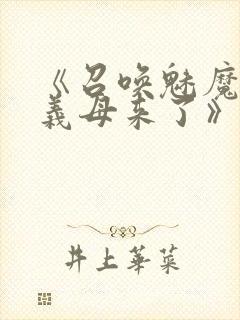 《召唤魅魔
義母来了》
井上華菜